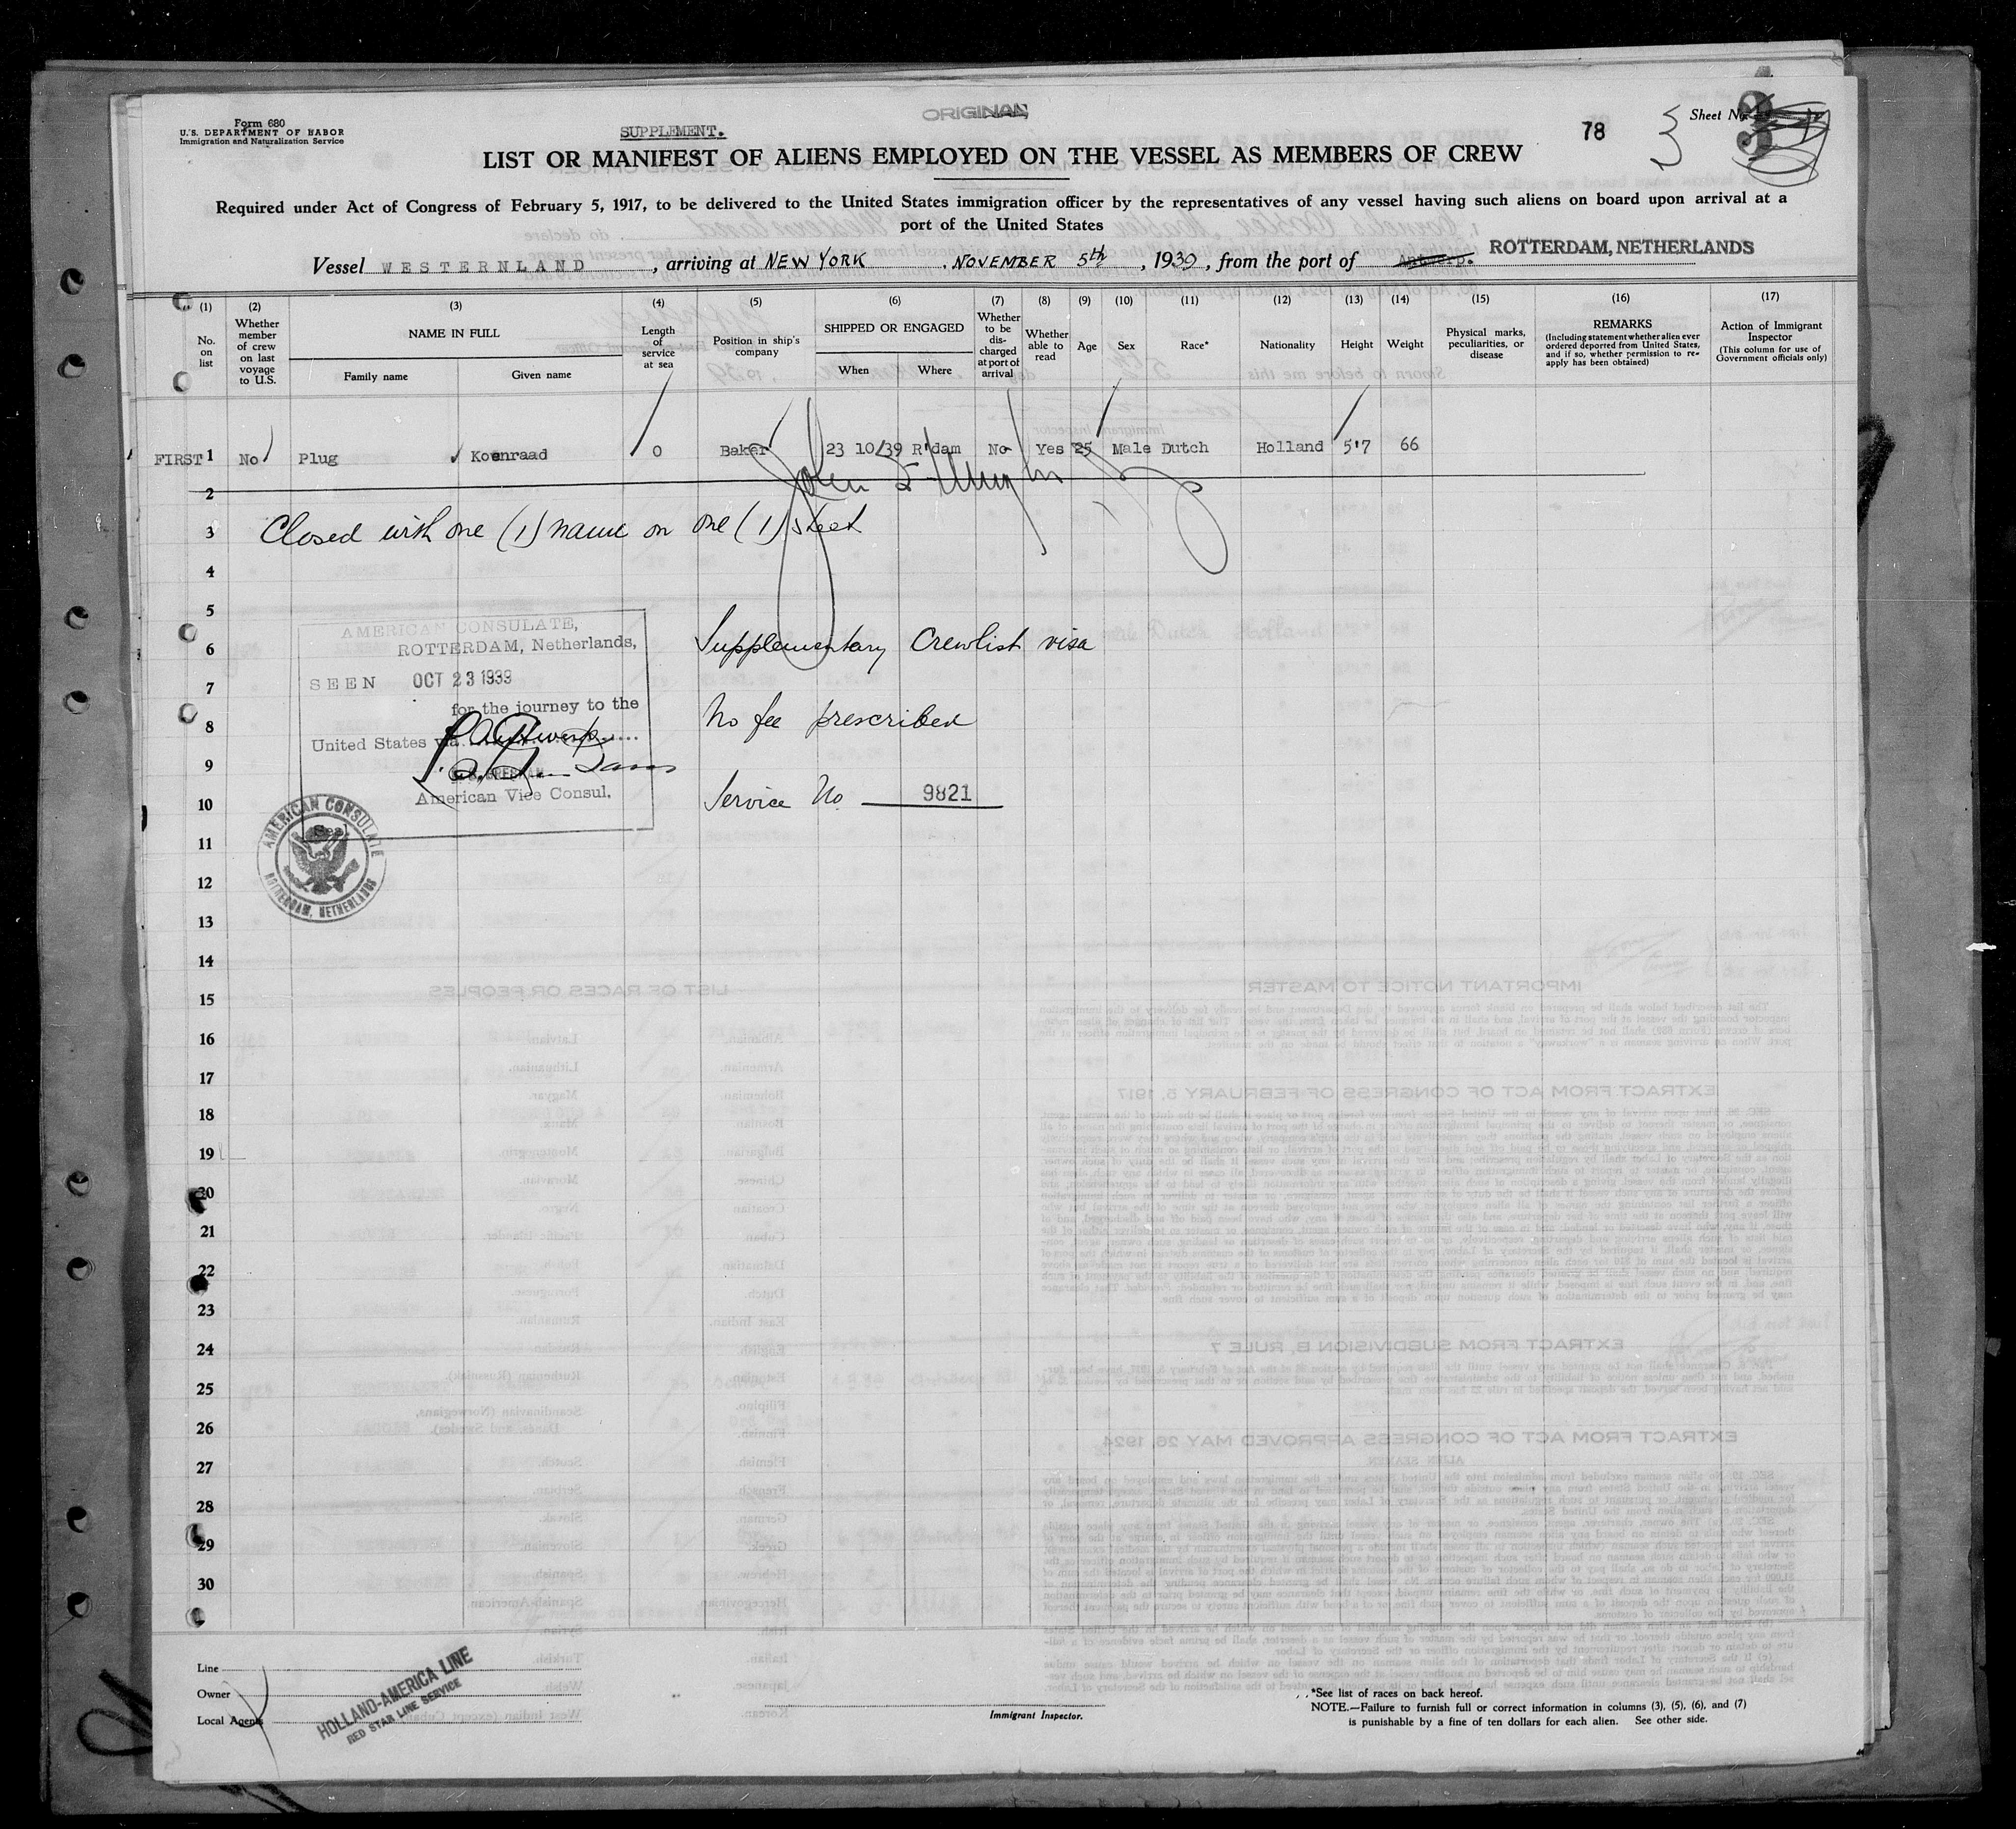 Form 680
U.S. DEPARTMENT OF LABOR
Immigration and Naturalization Service
SUPPLEMENT.
ORIGINAL
78
3
Sheet No.
LIST OR MANIFEST OF ALIENS EMPLOYED ON THE VESSEL AS MEMBERS OF CREW
Required under Act of Congress of February 5, 1917, to be delivered to the United States immigration officer by the representatives of any vessel having such aliens on board upon arrival at a
port of the United States
ROTTERDAM, NETHERLANDS
Vessel WESTERNLAND, arriving at NEW YORK, NOVEMBER 5th, 1939, from the port of Antwerp.
(1) (2) (3) (4) (5) (6) (7) (8) (9) (10) (11) (12) (13) (14) (15) (16) (17)
No. on list
Whether member of crew on last voyage to U.S.
NAME IN FULL
Family name
Given name
Length of service at sea
Position in ship's company
SHIPPED OR ENGAGED
When
Where
Whether to be discharged at port of arrival
Whether able to read
Age
Sex
Race*
Nationality
Height
Weight
Physical marks, peculiarities, or disease
REMARKS
(Including statement whether alien ever ordered deported from United States, and if so, whether permission to reapply has been obtained)
Action of Immigrant Inspector
(This column for use of Government officials only)
FIRST 1 No Plug Koenraad 0 Baker 23 10/39 R'dam No Yes 25 Male Dutch Holland 5'7 66
2
3 Closed with one (1) name on one (1) sheet
4
5
AMERICAN CONSULATE,
6 ROTTERDAM, Netherlands, Supplementary Crewlist visa
SEEN OCT 23 1939
7
for the journey to the
8 No fee prescribed
United States via
9
American Vice Consul.
10 Service No. 9821
Seal
AMERICAN CONSULATE
ROTTERDAM, NETHERLANDS
11
12
13
14
15
16
17
18
19
20
21
22
23
24
25
26
27
28
29
30
Line
Owner
Local Agents
HOLLAND-AMERICA LINE
RED STAR LINE SERVICE
Immigrant Inspector.
*See list of races on back hereof.
NOTE.—Failure to furnish full or correct information in columns (3), (5), (6), and (7)
is punishable by a fine of ten dollars for each alien. See other side.